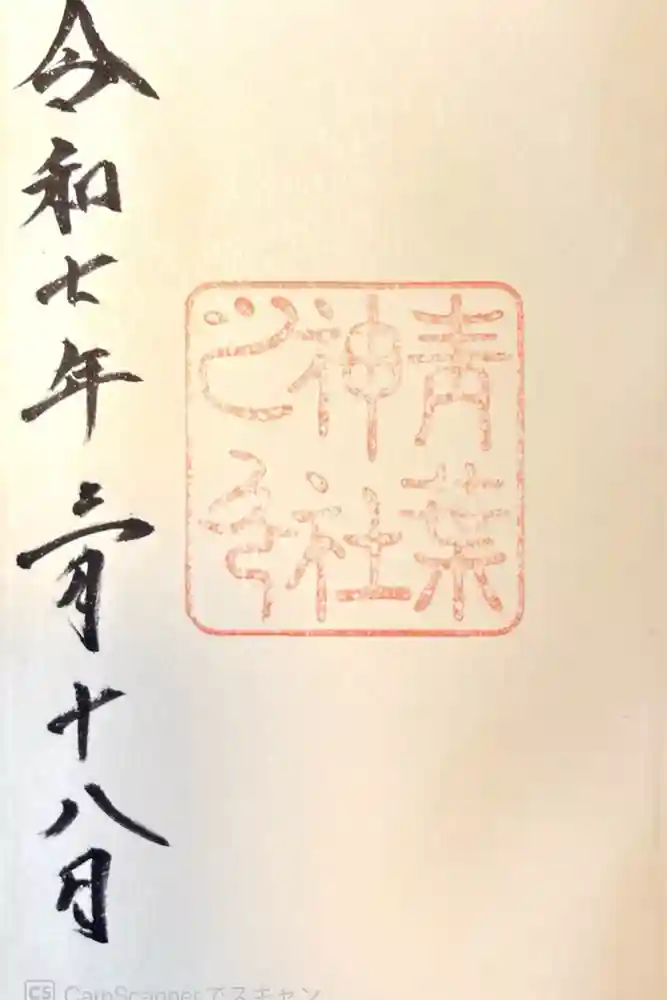 青葉
神社
之印
令和七年三月十八日
CS CamScannerでスキャン